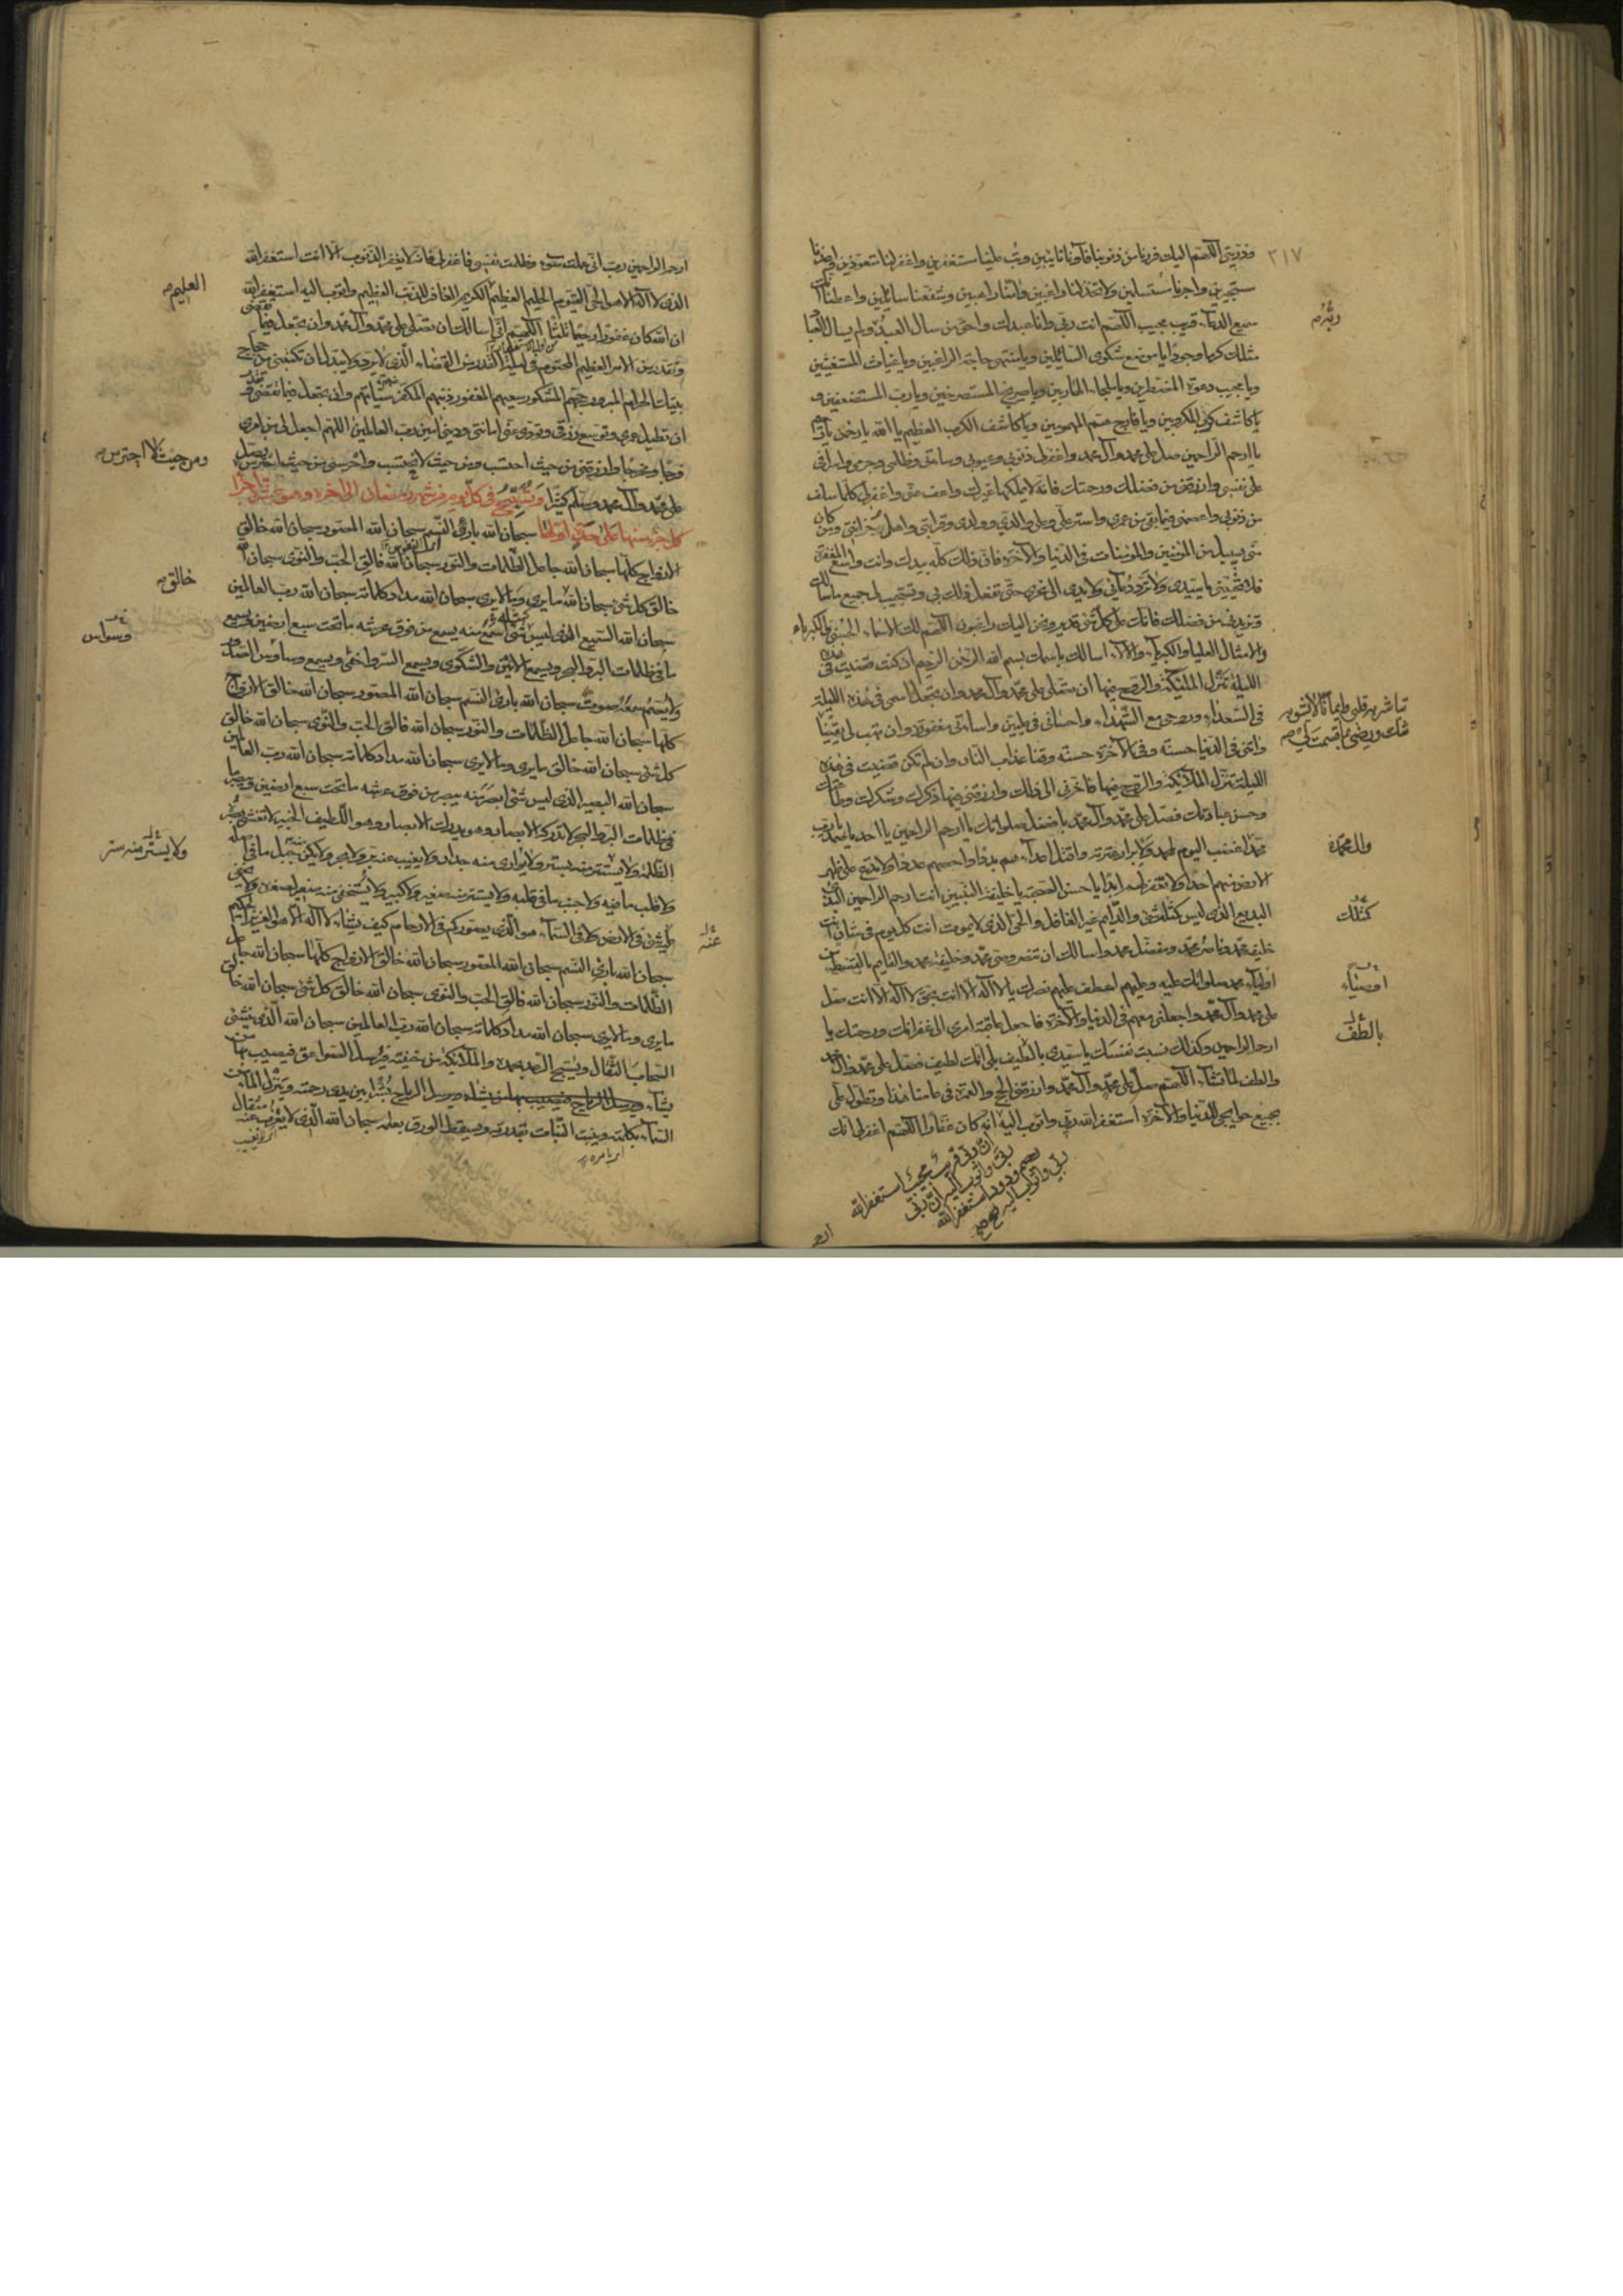 وذريتي اللهم اليك فررنا من ذنوبنا فآونا تائبين وتب علينا مستغفرين واغفر لنا متعوذين واعذنا
مستجيرين واجرنا مستسلمين ولا تخذلنا راغبين وآمنا راهبين وشفعنا سائلين واعطنا انك
سميع الدعاء قريب مجيب اللهم انت ربي وانا عبدك واحق من سال العبد ربه ولم يسال العباد
مثلك كرما وجودا يا موضع شكوى السائلين ويا منتهى حاجة الراغبين ويا غياث المستغيثين
ويا مجيب دعوة المضطرين ويا ملجاء الهاربين ويا صريخ المستصرخين ويا رب المستضعفين و
يا كاشف كرب المكروبين ويا فارج هم المهمومين ويا كاشف الكرب العظيم يا الله يا رحمن يا رحيم
يا ارحم الراحمين صل على محمد وآل محمد واغفر لي ذنوبي وعيوبي واساءتي وظلمي وجرمي واسرافي
على نفسي وارزقني من فضلك ورحمتك فانه لا يملكها غيرك واعف عني واغفر لي كلما سلف
من ذنوبي واعصمني فيما بقي من عمري واستر علي وعلى والدي وولدي وقرابتي واهل حزانتي ومن كان
مني بسبيل من المؤمنين والمؤمنات في الدنيا والآخرة فان ذلك كله بيدك وانت واسع المغفرة
فلا تخيبني يا سيدي ولا ترد دعائي ولا يدي الى نحري حتى تفعل ذلك بي وتستجيب لي جميع ما سالتك
وتزيدني من فضلك فانك على كل شئ قدير ونحن اليك راغبون اللهم لك الاسماء الحسنى والكبرياء
والامثال العليا والكبرياء والآلاء اسالك باسمك بسم الله الرحمن الرحيم ان كنت قضيت في هذه
الليلة تنزل الملئكة والروح فيها ان تصلي على محمد وآل محمد وان تجعل اسمي في هذه الليلة
في السعداء وروحي مع الشهداء واحساني في عليين واساءتي مغفورة وان تهب لي يقينا
تباشر به قلبي وايمانا لا يشوبه
شك ورضى بما قسمت لي
وآتني في الدنيا حسنة وفي الآخرة حسنة وقنا عذاب النار وان لم تكن قضيت في هذه
الليلة تنزل الملائكة والروح فيها فاخرني الى ذلك وارزقني فيها ذكرك وشكرك وطاعتك
وحسن عبادتك فصل على محمد وآل محمد بافضل صلواتك يا ارحم الراحمين يا احد يا صمد يا رب
محمد اغضب اليوم لمحمد ولابرار عترته واقتل اعداءهم بددا واحصهم عددا ولا تدع على ظهر
الارض منهم احدا ولا تغفر لهم ابدا يا حسن الصحبة يا خليفة النبيين انت ارحم الراحمين البدئ
البديع الذي ليس كمثله شئ والدايم غير الغافل والحي الذي لا يموت انت كل يوم في شان انت
خليفة محمد وناصر محمد ومفضل محمد واسالك ان تنصر وصي محمد وخليفة محمد والقايم بالقسط من
اوصياء محمد صلواتك عليه وعليهم اعطف عليهم نصرك يا لا اله الا انت بحق لا اله الا انت صل
على محمد وآل محمد واجعلني معهم في الدنيا والآخرة واجعل عاقبة امري الى غفرانك ورحمتك يا
ارحم الراحمين وكذلك نسبت نفسك يا سيدي باللطيف بلى انك لطيف فصل على محمد وآل محمد
والطف لما تشاء اللهم صل على محمد وآل محمد وارزقني الحج والعمرة في عامنا هذا وتطول علي
بجميع حوايجي للدنيا والآخرة استغفر الله ربي واتوب اليه انه كان غفارا اللهم اغفر لي انك
ان ربي قريب مجيب استغفر الله
ربي واتوب اليه ان ربي
رحيم ودود استغفر الله
ربي واتوب اليه
ارحم
٢١٧
ربه
كمثلك
اوصياء
بالطف
ارحم الراحمين رب اني عملت سوء وظلمت نفسي فاغفر لي فانه لا يغفر الذنوب الا انت استغفر الله
الذي لا اله الا هو الحي القيوم الحليم العظيم الكريم الغافر للذنب العظيم واتوب اليه استغفر الله
ان الله كان غفورا رحيما ثلثا اللهم اني اسالك ان تصلي على محمد وآل محمد وان تجعل فيما تقضي
وتقدر من الامر العظيم المحتوم في ليلة القدر من القضاء الذي لا يرد ولا يبدل ان تكتبني من حجاج
بيتك الحرام المبرور حجهم المشكور سعيهم المغفور ذنبهم المكفر سيئاتهم وان تجعل فيما تقضي وتقدر
ان تطيل عمري وتوسع رزقي وتؤدي عني امانتي وديني آمين رب العالمين اللهم اجعل لي من امري
فرجا ومخرجا وارزقني من حيث احتسب ومن حيث لا احتسب واحرسني من حيث احترس وصل
على محمد وآل محمد وسلم كثيرا وتسبح في كل يوم من شهر رمضان الى آخره وهو عشرة اجزاء
كل جزء منها على حدة اولها سبحان الله بارئ النسم سبحان الله المصور سبحان الله خالق
الازواج كلها سبحان الله جاعل الظلمات والنور سبحان الله فالق الحب والنوى سبحان الله
خالق كل شئ سبحان الله ما يرى وما لا يرى سبحان الله مداد كلماته سبحان الله رب العالمين
سبحان الله السميع الذي ليس شئ اسمع منه يسمع من فوق عرشه ما تحت سبع ارضين ويسمع
ما في ظلمات البر والبحر ويسمع الانين والشكوى ويسمع السر واخفى ويسمع وساوس الصدور
ولا يصم سمعه صوت سبحان الله بارئ النسم سبحان الله المصور سبحان الله خالق الازواج
كلها سبحان الله جاعل الظلمات والنور سبحان الله فالق الحب والنوى سبحان الله خالق
كل شئ سبحان الله خالق ما يرى وما لا يرى سبحان الله مداد كلماته سبحان الله رب العالمين
سبحان الله البصير الذي ليس شئ ابصر منه يبصر من فوق عرشه ما تحت سبع ارضين ويبصر ما
في ظلمات البر والبحر لا تدركه الابصار وهو يدرك الابصار وهو اللطيف الخبير لا تغشى بصره
الظلمة ولا يستتر منه بستر ولا يواري منه جدار ولا يغيب عنه بر ولا بحر ولا يكن منه جبل ما في اصله
ولا قلب ما فيه ولا جنب ما في قلبه ولا يستتر منه صغير ولا كبير ولا يستخفي منه صغير لصغره ولا يخفى
عليه شئ في الارض ولا في السماء هو الذي يصوركم في الارحام كيف يشاء لا اله الا هو العزيز الحكيم
سبحان الله بارئ النسم سبحان الله المصور سبحان الله خالق الازواج كلها سبحان الله جاعل
الظلمات والنور سبحان الله فالق الحب والنوى سبحان الله خالق كل شئ سبحان الله خالق
ما يرى وما لا يرى سبحان الله مداد كلماته سبحان الله رب العالمين سبحان الله الذي ينشئ
السحاب الثقال ويسبح الرعد بحمده والملائكة من خيفته ويرسل الصواعق فيصيب بها من
يشاء ويرسل الرياح بشرا بين يدي رحمته وينزل الماء من
السماء بكلمته وينبت النبات بقدرته ويسقط الورق بعلمه سبحان الله الذي لا يعزب عنه مثقال
العليم
ومن حيث لا احترس
خالق
وسواس
ولا يستتر منه ستر
عنه